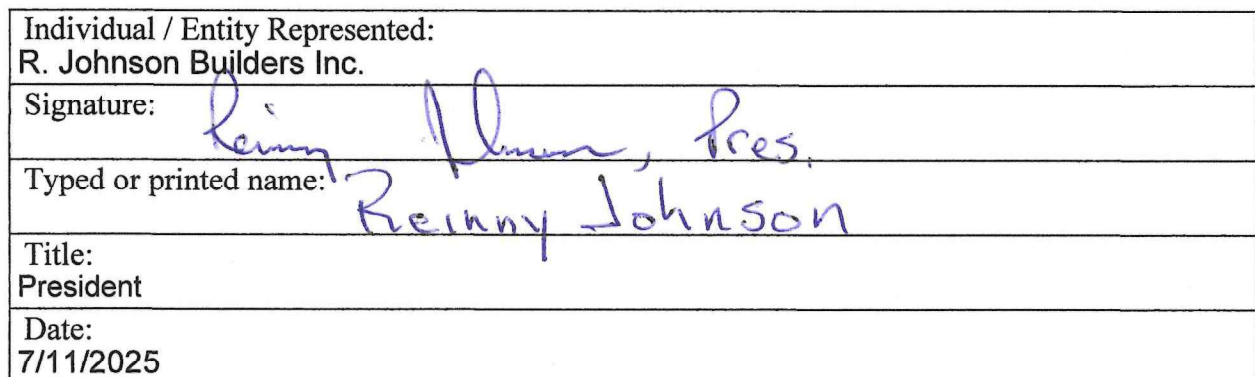 Individual / Entity Represented:
R. Johnson Builders Inc.
Signature: , Pres.
Typed or printed name: Reinny Johnson
Title:
President
Date:
7/11/2025